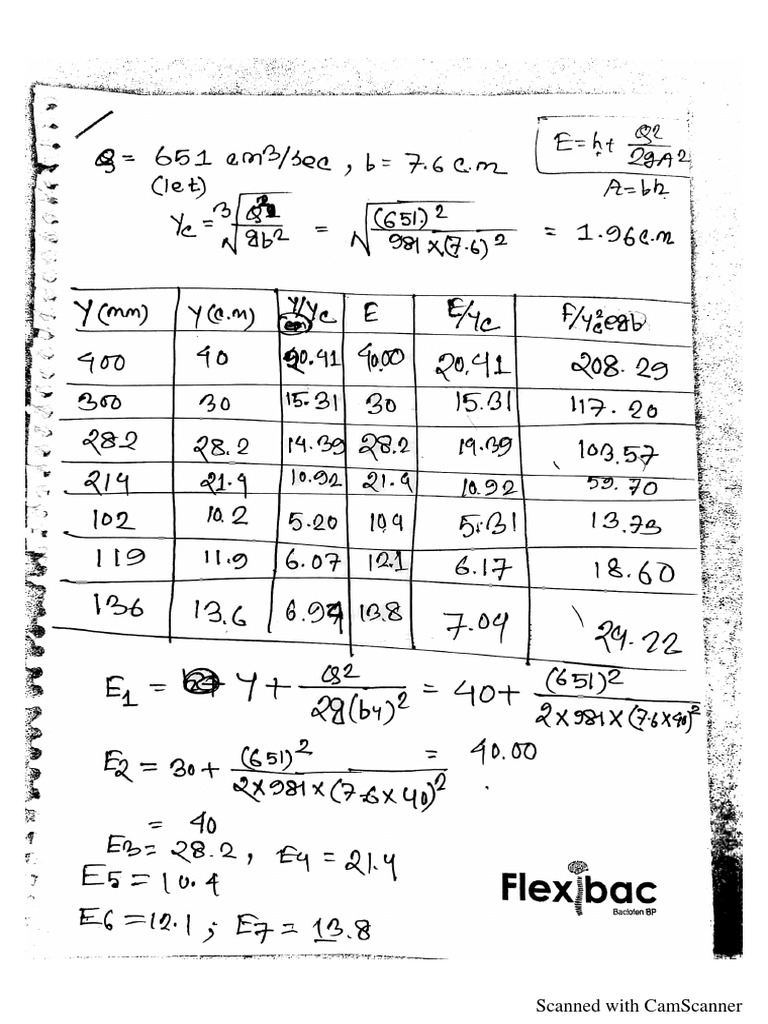 Q = 651 cm3/sec, b = 7.6 c.m
(let)
E = h + Q2/2gA2
A = bh
yc = 3√Q2/gb2 = √(651)2/981×(7.6)2 = 1.96 c.m
Y (mm) Y (c.m) Y/Yc E E/yc F/yc2egb
400 40 20.41 40.00 20.41 208.29
300 30 15.31 30 15.31 117.20
282 28.2 14.39 28.2 14.39 103.57
214 21.4 10.92 21.4 10.92 59.70
102 10.2 5.20 10.4 5.31 13.73
119 11.9 6.07 12.1 6.17 18.60
136 13.6 6.94 13.8 7.04 24.22
E1 = y + Q2/2g(by)2 = 40 + (651)2/2×981×(7.6×40)2
= 40.00
E2 = 30 + (651)2/2×981×(7.6×40)2
= 40
E3 = 28.2, E4 = 21.4
E5 = 10.4
E6 = 12.1 ; E7 = 13.8
Flexibac
Baclofen BP
Scanned with CamScanner